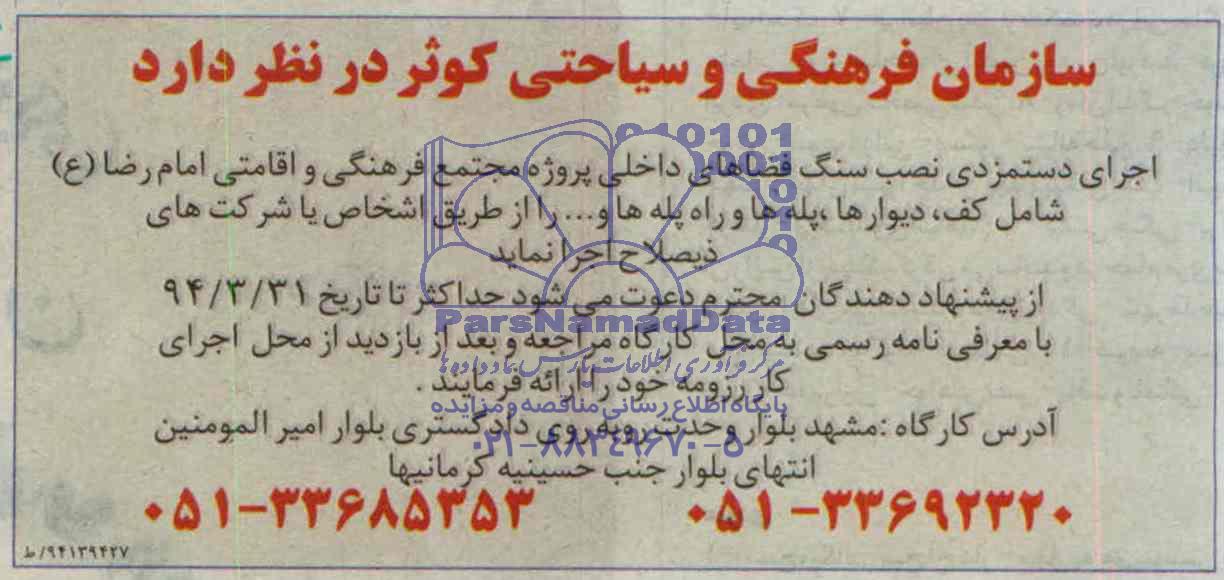 سازمان فرهنگی و سیاحتی کوثر در نظر دارد
اجرای دستمزدی نصب سنگ فضاهای داخلی پروژه مجتمع فرهنگی و اقامتی امام رضا (ع)
شامل کف، دیوارها ،پله ها و راه پله ها و... را از طریق اشخاص یا شرکت های
ذیصلاح اجرا نماید
از پیشنهاد دهندگان محترم دعوت می شود حداکثر تا تاریخ ۹۴/۳/۳۱
با معرفی نامه رسمی به محل کارگاه مراجعه و بعد از بازدید از محل اجرای
کار رزومه خود را ارائه فرمایند .
آدرس کارگاه :مشهد بلوار وحدت روبه روی دادگستری بلوار امیر المومنین
انتهای بلوار جنب حسینیه کرمانیها
۰۵۱-۳۳۶۹۲۳۲۰ ۰۵۱-۳۳۶۸۵۳۵۳
۹۴۱۳۹۴۲۷/ط
ParsNamadData
مرکز فرآوری اطلاعات پارس نماد داده ها
پایگاه اطلاع رسانی مناقصه و مزایده
۰۲۱-۸۸۳۴۹۶۷۰-۵